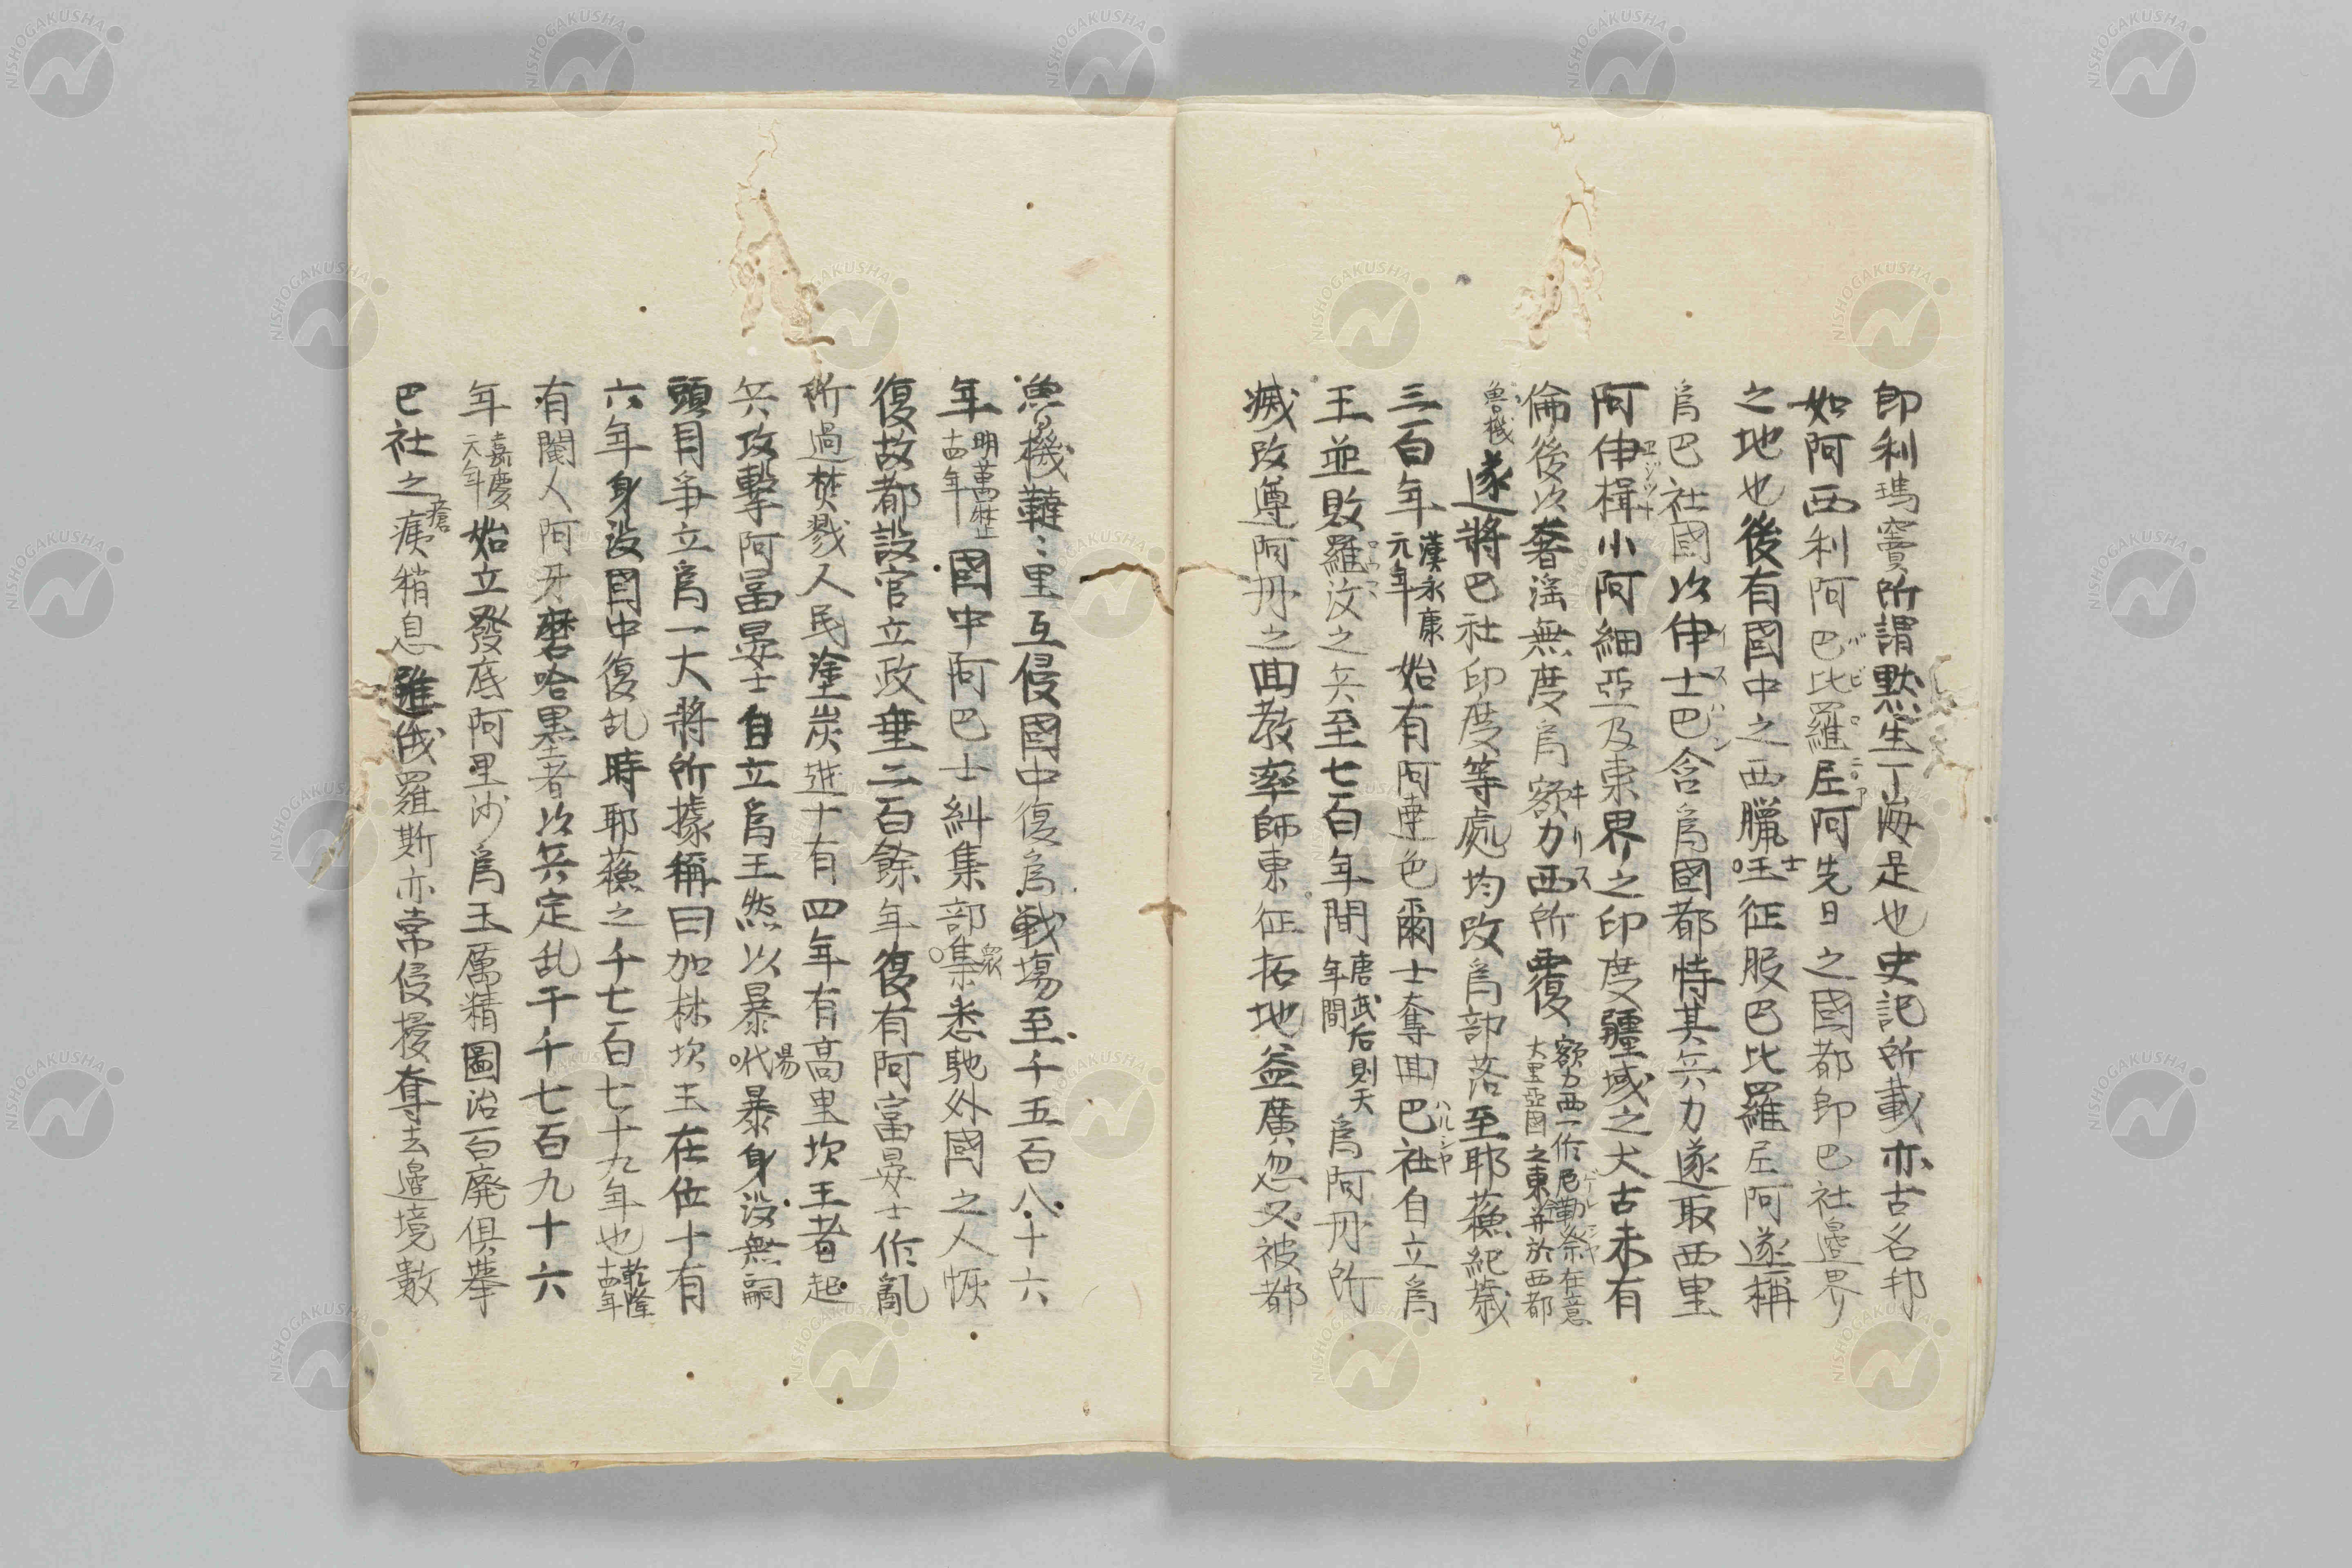 即利瑪竇所謂黙生丁海是也史記所載亦古名邦
如阿西利阿巴比羅尼阿先日之國都即巴社邊界
バビロニア
之地也後有國中之西臘士王征服巴比羅尼阿遂稱
爲巴社國以伊士巴含爲國都恃其兵力遂取西里
イスパハン
阿伊楫小阿細亞及東界之印度疆域之大古未有
エジツト
倫後以奢滛無度爲額力西所覆額力西一作厄勒祭在意大里亞國之東並於西都
キリス
ゲレシヤ
魯機遂將巴社印度等處均改爲部落至耶蘓紀歳
三百年漢永康元年始有阿連色爾士奪回巴社自立爲
ハルシヤ
王並敗羅汶之兵至七百年間唐武后則天年間爲阿丹所
ロウマ
滅改遵阿丹之回教率師東征拓地益廣忽又被都
魯機韃〻里互侵國中復爲戰塲至千五百八十六
年明萬歴十四年國中阿巴士糾集部集悉馳外國之人恢
衆
復故都設官立政垂二百餘年復有阿富晏士作亂
所過焚戮人民塗炭進十有四年有高里坎王者起
兵攻擊阿富晏士自立爲王然以暴代暴身没無嗣
湯
頭目爭立爲一大將所據稱曰加林坎王在位十有
六年身没國中復乱時耶蘓之千七百七十九年也乾隆十四年
有閹人阿牙磨哈墨者以兵定乱千千七百九十六
年嘉慶元年始立發底阿里沙爲王厲精圖治百廃俱挙
巴社之痍稍息雖俄羅斯亦常侵擾奪去邉境數
瘡